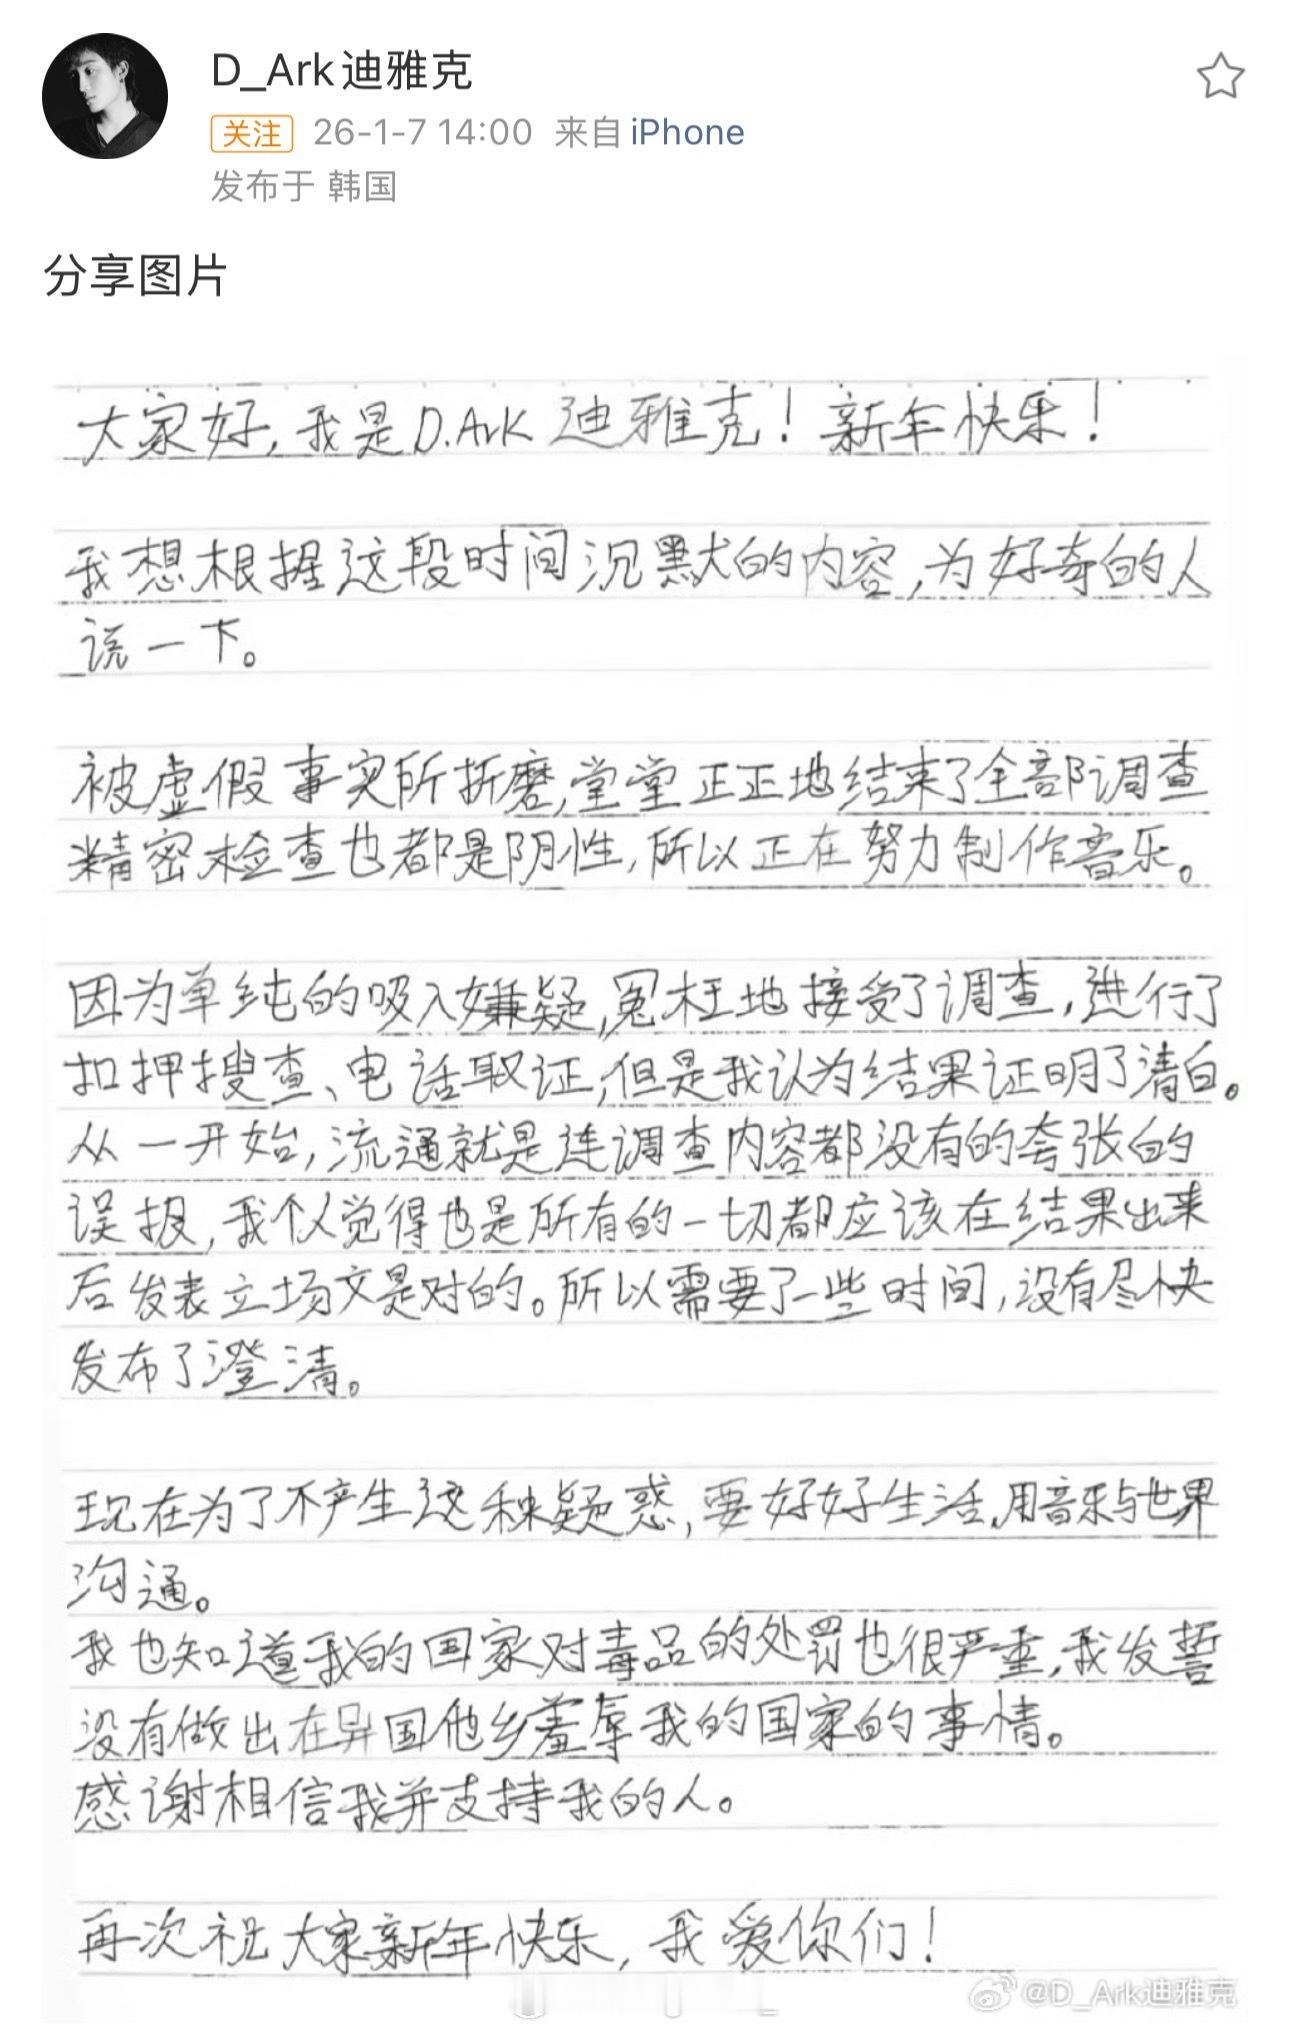 D_Ark迪雅克
关注 26-1-7 14:00 来自 iPhone
发布于 韩国
分享图片
大家好,我是D.Ark 迪雅克！新年快乐！
我想根据这段时间沉默的内容,为好奇的人
说一下。
被虚假事实所折磨,堂堂正正地结束了全部调查
精密检查也都是阴性,所以正在努力制作音乐。
因为单纯的吸入嫌疑,冤枉地接受了调查,进行了
扣押搜查、电话取证,但是我认为结果证明了清白。
从一开始,流通就是连调查内容都没有的夸张的
误报,我个人觉得也是所有的一切都应该在结果出来
后发表立场文是对的。所以需要了一些时间,没有尽快
发布了澄清。
现在为了不产生这种疑惑,要好好生活,用音乐与世界
沟通。
我也知道我的国家对毒品的处罚也很严重,我发誓
没有做出在异国他乡羞辱我的国家的事情。
感谢相信我并支持我的人。
再次祝大家新年快乐,我爱你们！
@D_Ark迪雅克